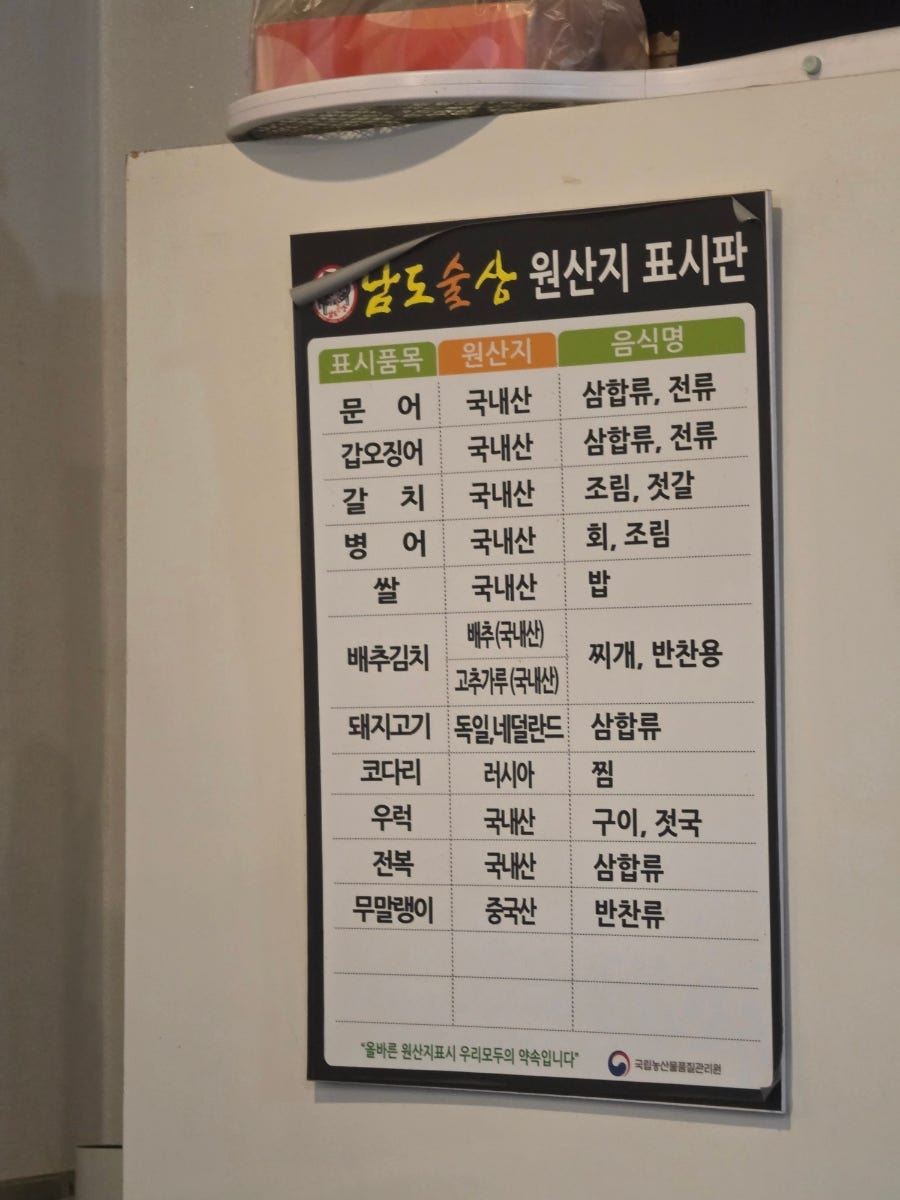 남도술상 원산지 표시판
표시품목 원산지 음식명
문 어 국내산 삼합류, 전류
갑오징어 국내산 삼합류, 전류
갈 치 국내산 조림, 젓갈
병 어 국내산 회, 조림
쌀 국내산 밥
배추김치 배추(국내산) 찌개, 반찬용
고추가루(국내산)
돼지고기 독일,네덜란드 삼합류
코다리 러시아 찜
우럭 국내산 구이, 젓국
전복 국내산 삼합류
무말랭이 중국산 반찬류
"올바른 원산지표시 우리모두의 약속입니다" 국립농산물품질관리원